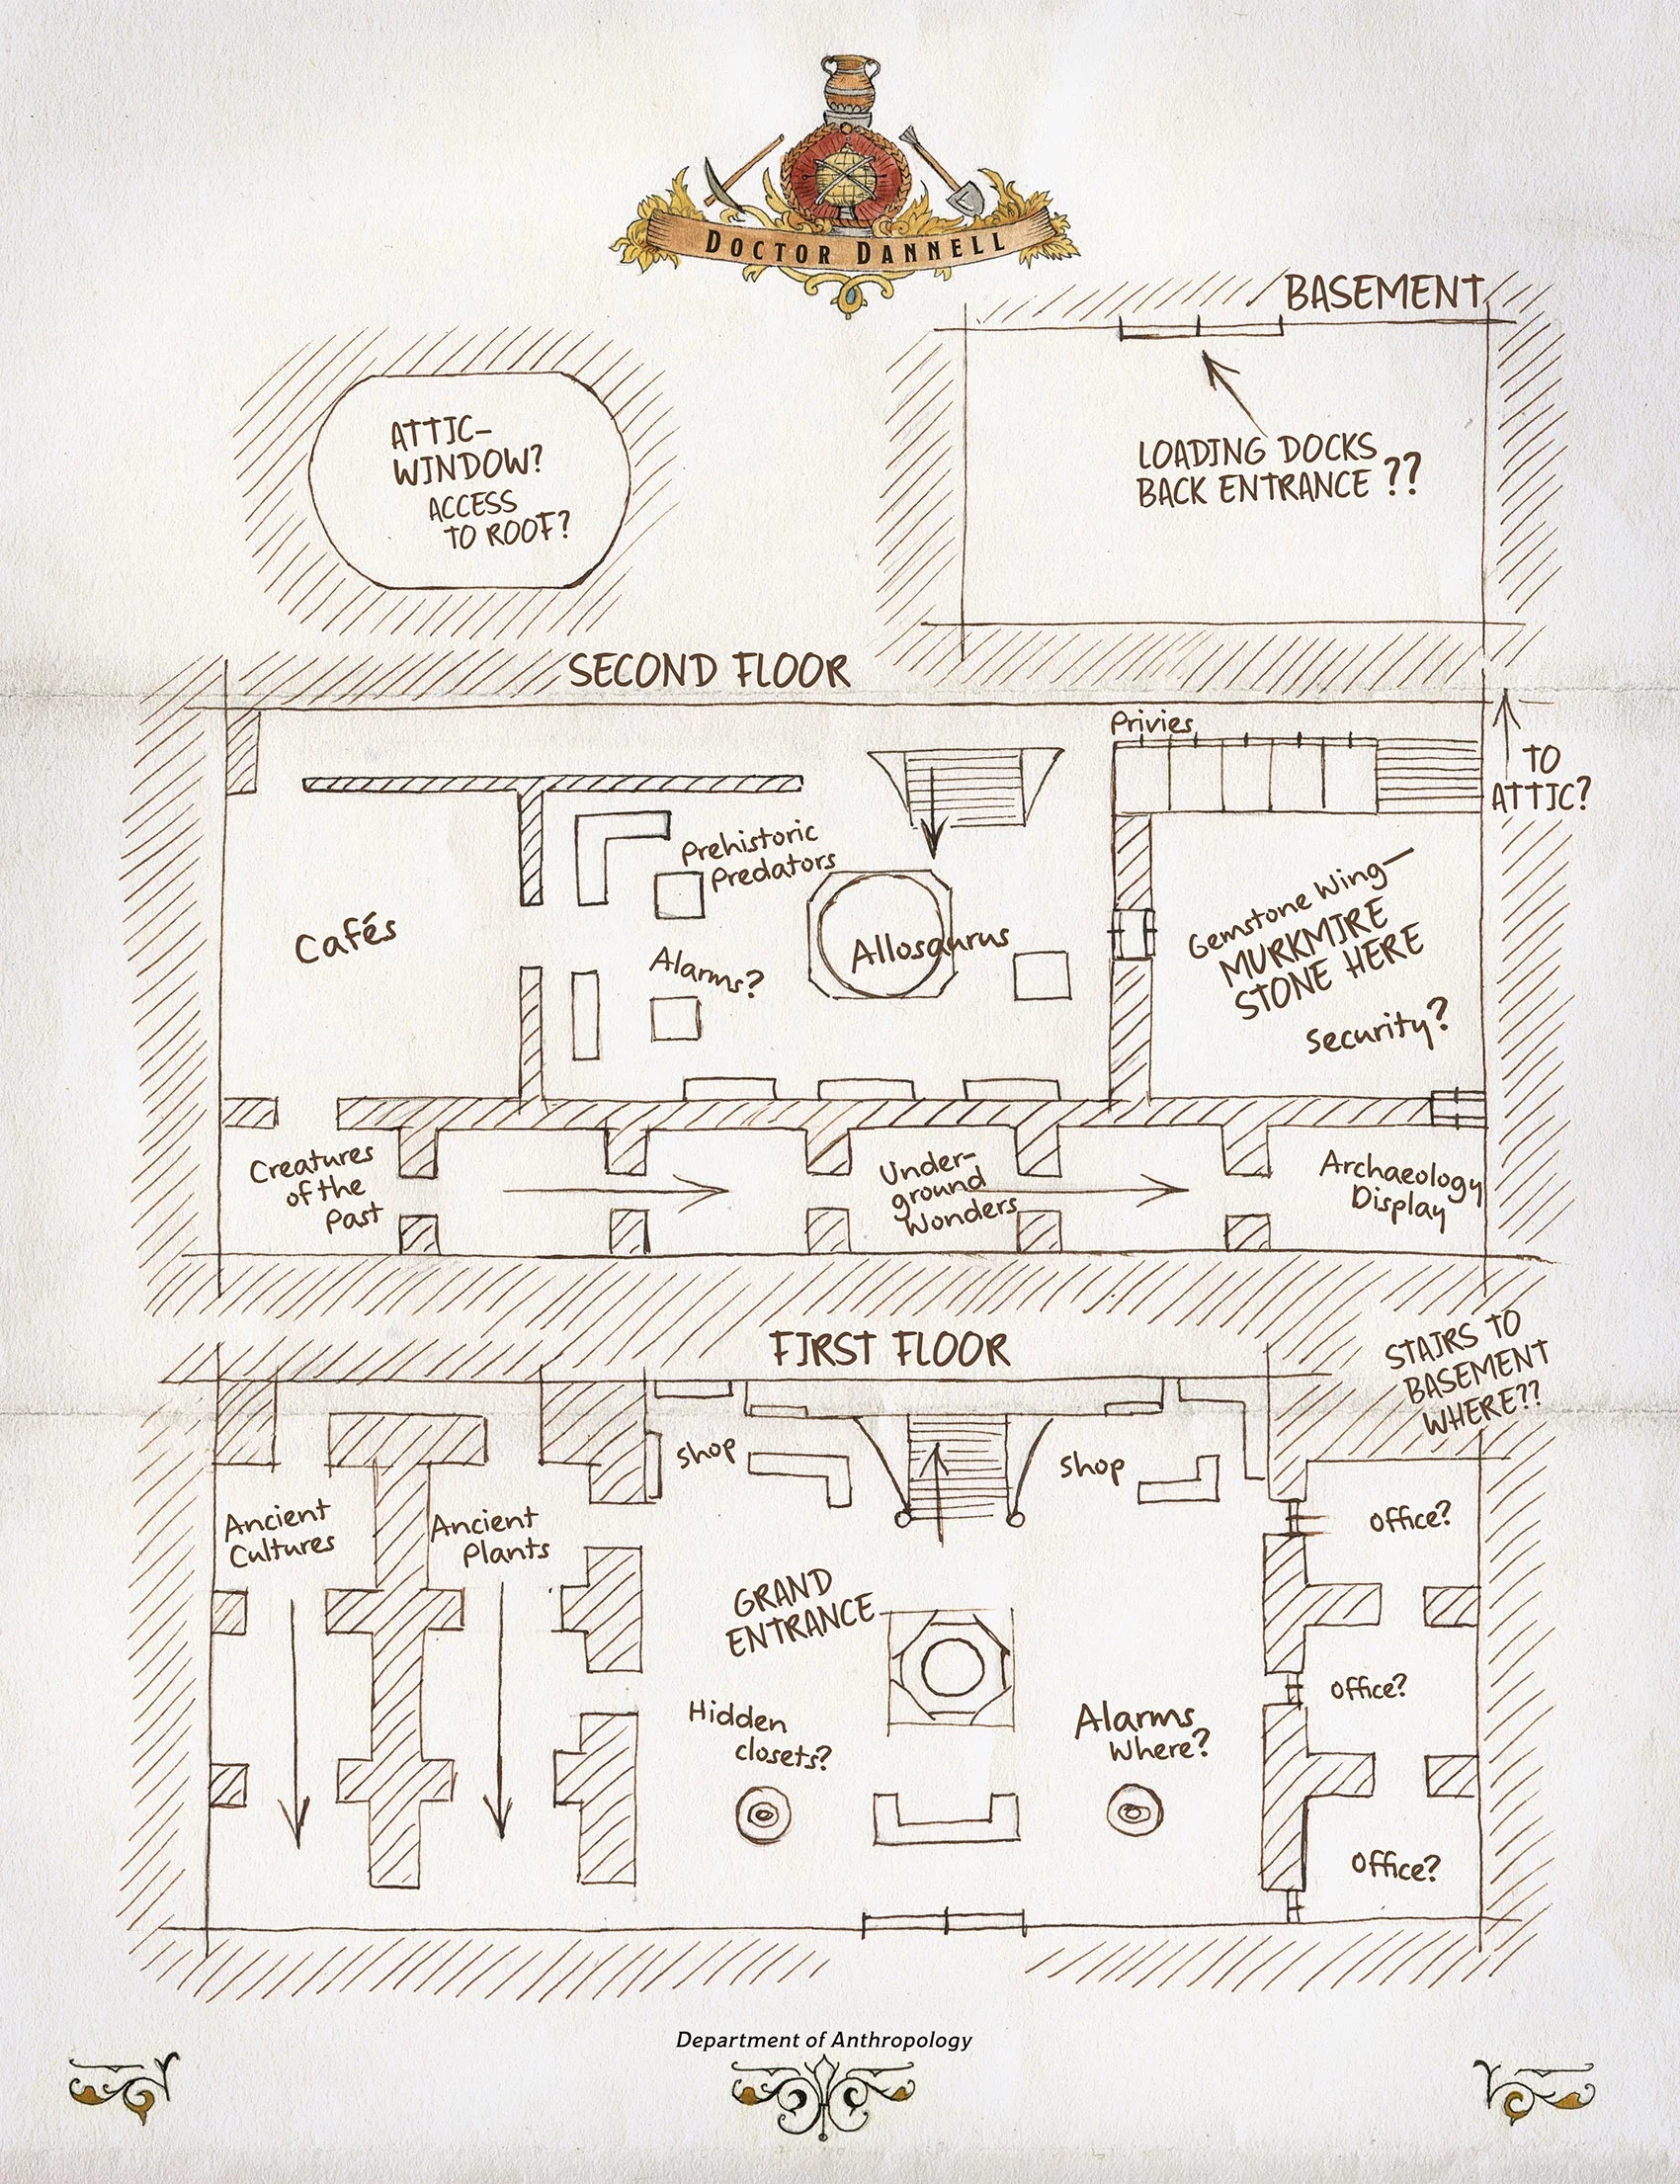 DOCTOR DANNELL
BASEMENT
ATTIC-
WINDOW?
ACCESS
TO ROOF?
LOADING DOCKS
BACK ENTRANCE ??
SECOND FLOOR
Privies
TO
ATTIC?
Prehistoric
Predators
Cafés
Allosaurus
Alarms?
Gemstone Wing—
MURKMIRE
STONE HERE
Security?
Creatures
of the
Past
Under-
ground
Wonders
Archaeology
Display
FIRST FLOOR
STAIRS TO
BASEMENT
WHERE??
Shop
Shop
Ancient
Cultures
Ancient
Plants
Office?
GRAND
ENTRANCE
Office?
Hidden
closets?
Alarms
Where?
Office?
Department of Anthropology